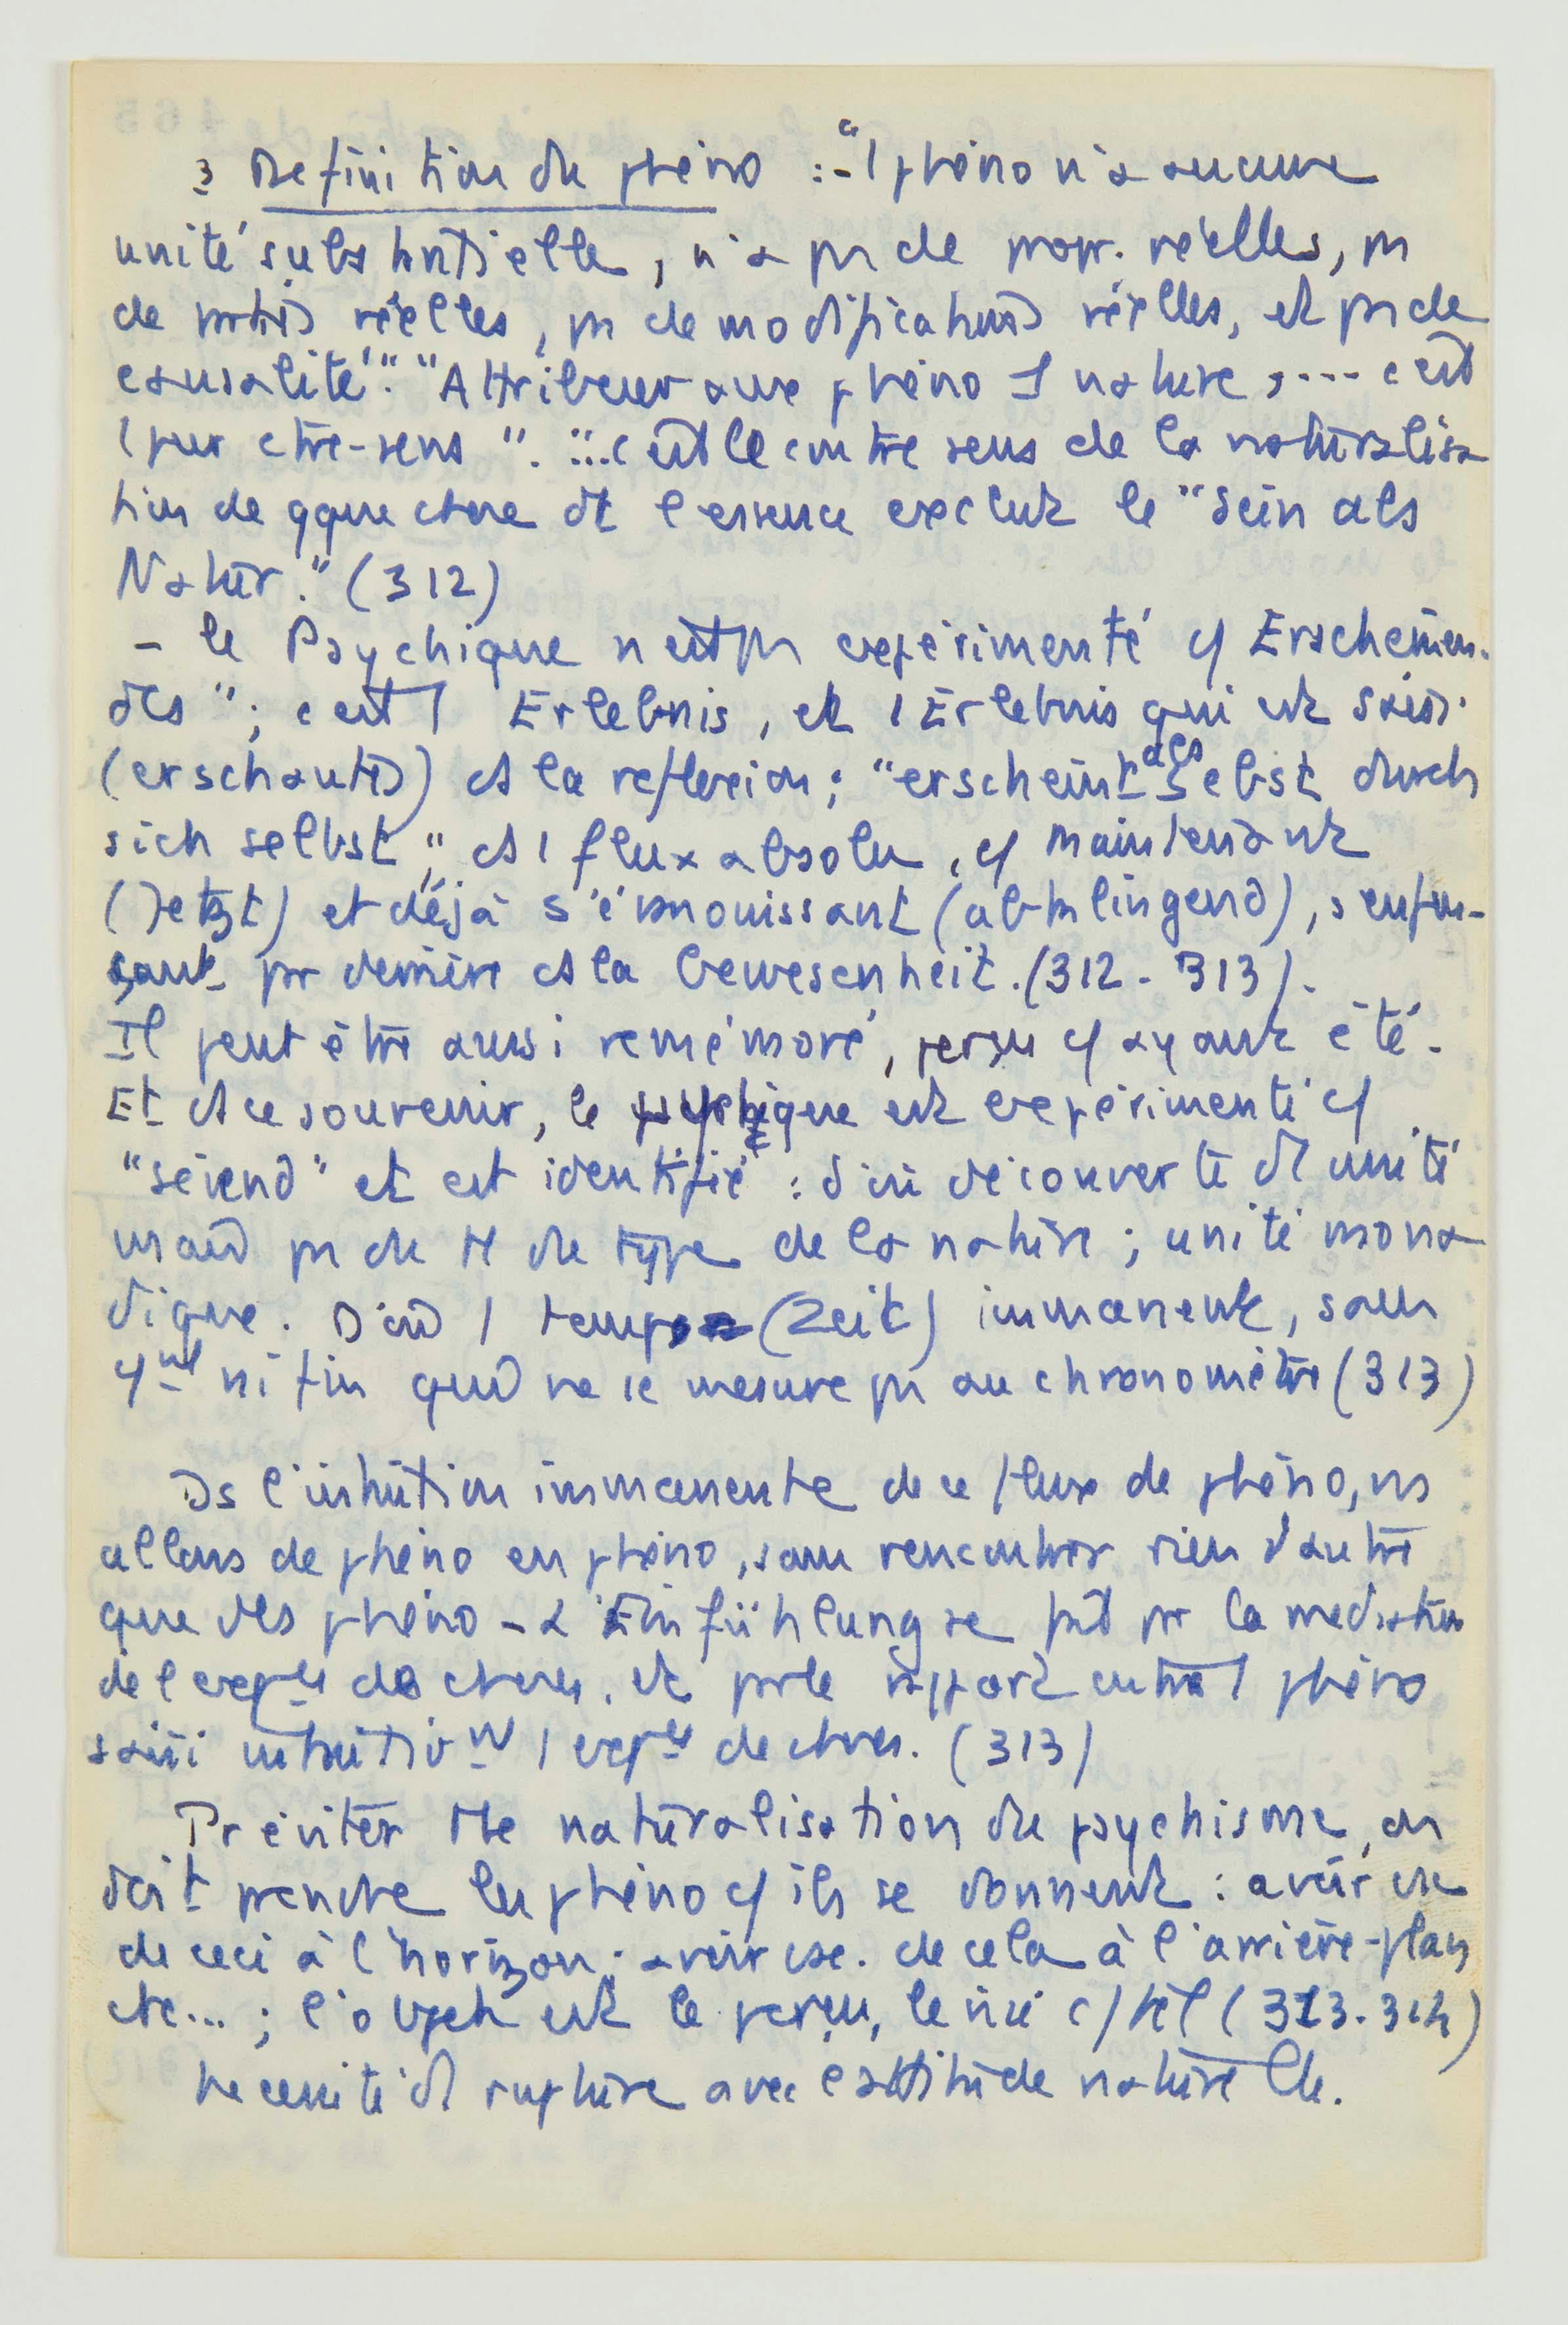 3 Definition du phéno : - " 1 phéno n'a aucune
unité substantielle, n'a pas de propr. réelles, pas
de parties réelles, pas de modifications réelles, et pas de
causalité". "Attribuer aux phéno 1 nature, .... c'est
1 pur ctre-sens". ... c'est le contre sens de la naturalisa
tion de qque chose dt l'essence exclut le "Sein als
Natur." (312)
- le Psychique n'est pas expérimenté c/ Erscheinen-
des"; c'est 1 Erlebnis, et 1 Erlebnis qui est saisi
(erschautes) ds la reflexion; "erscheint als selbst durch
sich selbst", ds 1 flux absolu, c/ maintenant
(Jetzt) et déjà s'évanouissant (abklingend), s'enfon-
çant par derrière ds la Gewesenheit. (312-313).
Il peut être aussi remémoré, perçu c/ ayant été.
Et ds ce souvenir, le psychique est expérimenté c/
"seiend" et est identifié : d'où découverte d'1 unité
mais pas du tt du type de la nature ; unité mona
dique. D'où 1 temps (Zeit) immanent, sans
ni fin qui ne se mesure pas au chronomètre (313)
Ds l'intuition immanente de ce flux de phéno, ns
allons de phéno en phéno, sans rencontrer rien d'autre
que des phéno - L'Einfühlung se fait par la médiation
de l'expce des choses, et par le rapport entre 1 phéno
saisi intuitivt 1 expce de choses. (313)
Pr éviter tte naturalisation du psychisme, on
doit prendre les phéno c/ ils se donnent : avoir csc
de ceci à l'horizon ; avoir csc. de cela à l'arrière-plan
etc... ; l'objet est le perçu, le visé c/ tel (313-314)
Necessité d'1 rupture avec l'attitude naturelle.